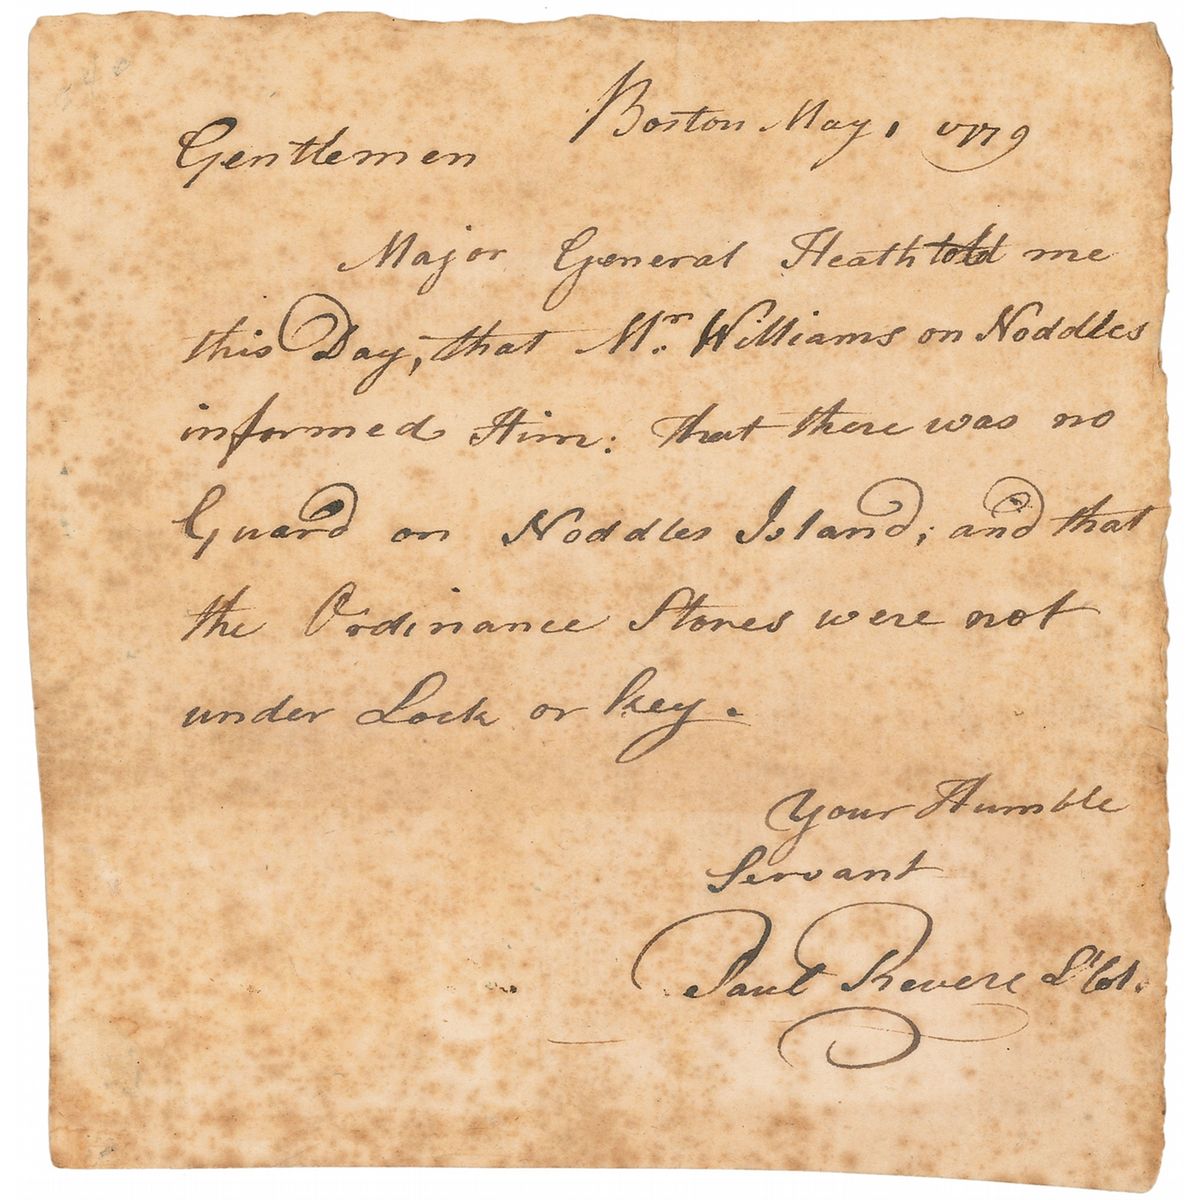 Boston May 1 1779
Gentlemen
Major General Heath told me
this Day, that Mr. Williams on Noddles
informed Him: that there was no
Guard on Noddles Island; and that
the Ordinance Stores were not
under Lock or key.
Your Humble
Servant
Paul Revere Lt Col.